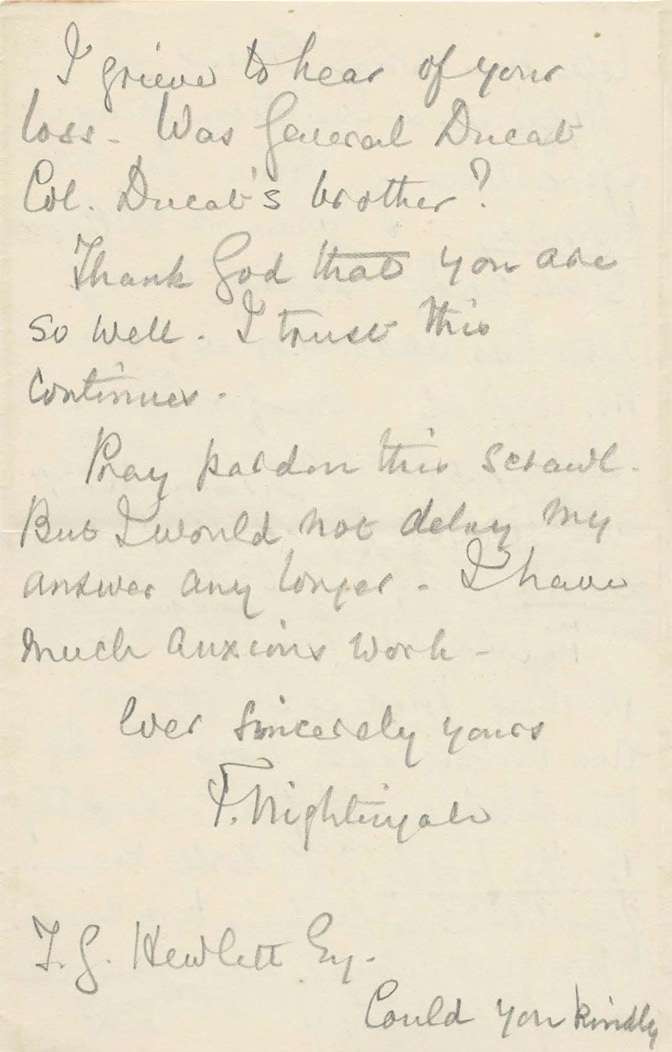 I grieve to hear of your
loss - Was General Ducat
Col. Ducat's brother?
Thank God that you are
so well. I trust this
continues.
Pray pardon this scrawl.
But I would not delay my
answer any longer - I have
much anxious work -
Ever sincerely yours
F. Nightingale
T. G. Hewlett Esq.
Could you kindly